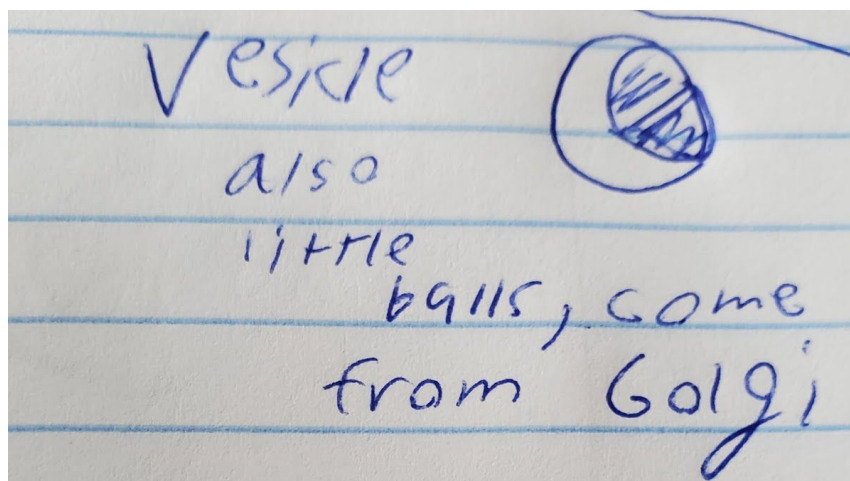 Vesicle
also
little
balls, come
from Golgi